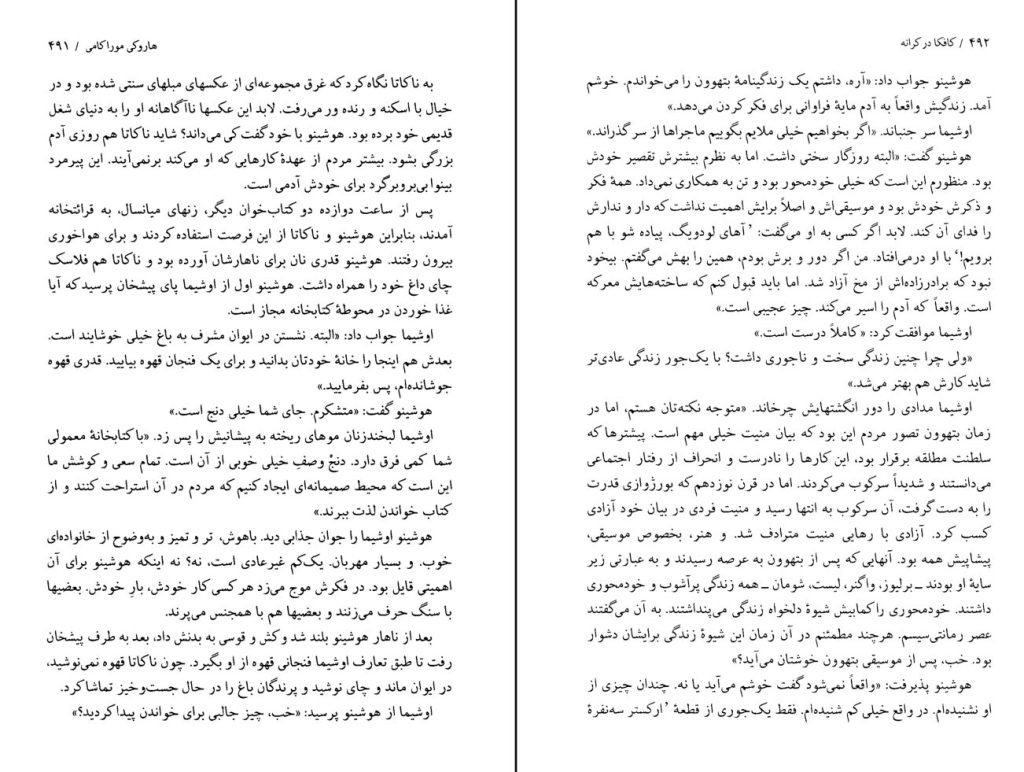 هاروکی موراکامی / ۴۹۱
به ناکاتا نگاه کرد که غرق مجموعه‌ای از عکسهای مبلهای سنتی شده بود و در
خیال با اسکنه و رنده ور می‌رفت. لابد این عکسها ناآگاهانه او را به دنیای شغل
قدیمی خود برده بود. هوشینو با خود گفت کی می‌داند؟ شاید ناکاتا هم روزی آدم
بزرگی بشود. بیشتر مردم از عهدهٔ کارهایی که او می‌کند برنمی‌آیند. این پیرمرد
بینوا بی‌بروبرگرد برای خودش آدمی است.
پس از ساعت دوازده دو کتاب‌خوان دیگر، زنهای میانسال، به قرائتخانه
آمدند، بنابراین هوشینو و ناکاتا از این فرصت استفاده کردند و برای هواخوری
بیرون رفتند. هوشینو قدری نان برای ناهارشان آورده بود و ناکاتا هم فلاسک
چای داغ خود را همراه داشت. هوشینو اول از اوشیما پای پیشخان پرسید که آیا
غذا خوردن در محوطهٔ کتابخانه مجاز است.
اوشیما جواب داد: «البته. نشستن در ایوان مشرف به باغ خیلی خوشایند است.
بعدش هم اینجا را خانهٔ خودتان بدانید و برای یک فنجان قهوه بیایید. قدری قهوه
جوشانده‌ام، پس بفرمایید.»
هوشینو گفت: «متشکرم. جای شما خیلی دنج است.»
اوشیما لبخندزنان موهای ریخته به پیشانیش را پس زد. «با کتابخانهٔ معمولی
شما کمی فرق دارد. دنجْ وصفِ خیلی خوبی از آن است. تمام سعی و کوشش ما
این است که محیط صمیمانه‌ای ایجاد کنیم که مردم در آن استراحت کنند و از
کتاب خواندن لذت ببرند.»
هوشینو اوشیما را جوان جذابی دید. باهوش، تر و تمیز و به‌وضوح از خانواده‌ای
خوب. و بسیار مهربان. یک‌کم غیرعادی است، نه؟ نه اینکه هوشینو برای آن
اهمیتی قایل بود. در فکرش موج می‌زد هر کسی کار خودش، بارِ خودش. بعضیها
با سنگ حرف می‌زنند و بعضیها هم با همجنس می‌پرند.
بعد از ناهار هوشینو بلند شد و کش و قوسی به بدنش داد، بعد به طرف پیشخان
رفت تا طبق تعارف اوشیما فنجانی قهوه از او بگیرد. چون ناکاتا قهوه نمی‌نوشید،
در ایوان ماند و چای نوشید و پرندگان باغ را در حال جست‌وخیز تماشا کرد.
اوشیما از هوشینو پرسید: «خب، چیز جالبی برای خواندن پیدا کردید؟»
۴۹۲ / کافکا در کرانه
هوشینو جواب داد: «آره، داشتم یک زندگینامهٔ بتهوون را می‌خواندم. خوشم
آمد. زندگیش واقعاً به آدم مایهٔ فراوانی برای فکر کردن می‌دهد.»
اوشیما سر جنباند. «اگر بخواهیم خیلی ملایم بگوییم ماجراها از سر گذراند.»
هوشینو گفت: «البته روزگار سختی داشت. اما به نظرم بیشترش تقصیر خودش
بود. منظورم این است که خیلی خودمحور بود و تن به همکاری نمی‌داد. همهٔ فکر
و ذکرش خودش بود و موسیقی‌اش و اصلاً برایش اهمیت نداشت که دار و ندارش
را فدای آن کند. لابد اگر کسی به او می‌گفت: ’آهای لودویگ، پیاده شو با هم
برویم!‘ با او درمی‌افتاد. من اگر دور و برش بودم، همین را بهش می‌گفتم. بیخود
نبود که برادرزاده‌اش از مخ آزاد شد. اما باید قبول کنم که ساخته‌هایش معرکه
است. واقعاً که آدم را اسیر می‌کند. چیز عجیبی است.»
اوشیما موافقت کرد: «کاملاً درست است.»
«ولی چرا چنین زندگی سخت و ناجوری داشت؟ با یک‌جور زندگی عادی‌تر
شاید کارش هم بهتر می‌شد.»
اوشیما مدادی را دور انگشتهایش چرخاند. «متوجه نکته‌تان هستم، اما در
زمان بتهوون تصور مردم این بود که بیان منیت خیلی مهم است. پیشترها که
سلطنت مطلقه برقرار بود، این کارها را نادرست و انحراف از رفتار اجتماعی
می‌دانستند و شدیداً سرکوب می‌کردند. اما در قرن نوزدهم که بورژوازی قدرت
را به دست گرفت، آن سرکوب به انتها رسید و منیت فردی در بیان خود آزادی
کسب کرد. آزادی با رهایی منیت مترادف شد. و هنر، بخصوص موسیقی،
پیشاپیش همه بود. آنهایی که پس از بتهوون به عرصه رسیدند و به عبارتی زیر
سایهٔ او بودند ــ برلیوز، واگنر، لیست، شومان ــ همه زندگی پرآشوب و خودمحوری
داشتند. خودمحوری را کمابیش شیوهٔ دلخواه زندگی می‌پنداشتند. به آن می‌گفتند
عصر رمانتی‌سیسم. هرچند مطمئنم در آن زمان این شیوهٔ زندگی برایشان دشوار
بود. خب، پس از موسیقی بتهوون خوشتان می‌آید؟»
هوشینو پذیرفت: «واقعاً نمی‌شود گفت خوشم می‌آید یا نه. چندان چیزی از
او نشنیده‌ام. در واقع خیلی کم شنیده‌ام. فقط یک‌جوری از قطعهٔ ’ارکستر سه‌نفرهٔ